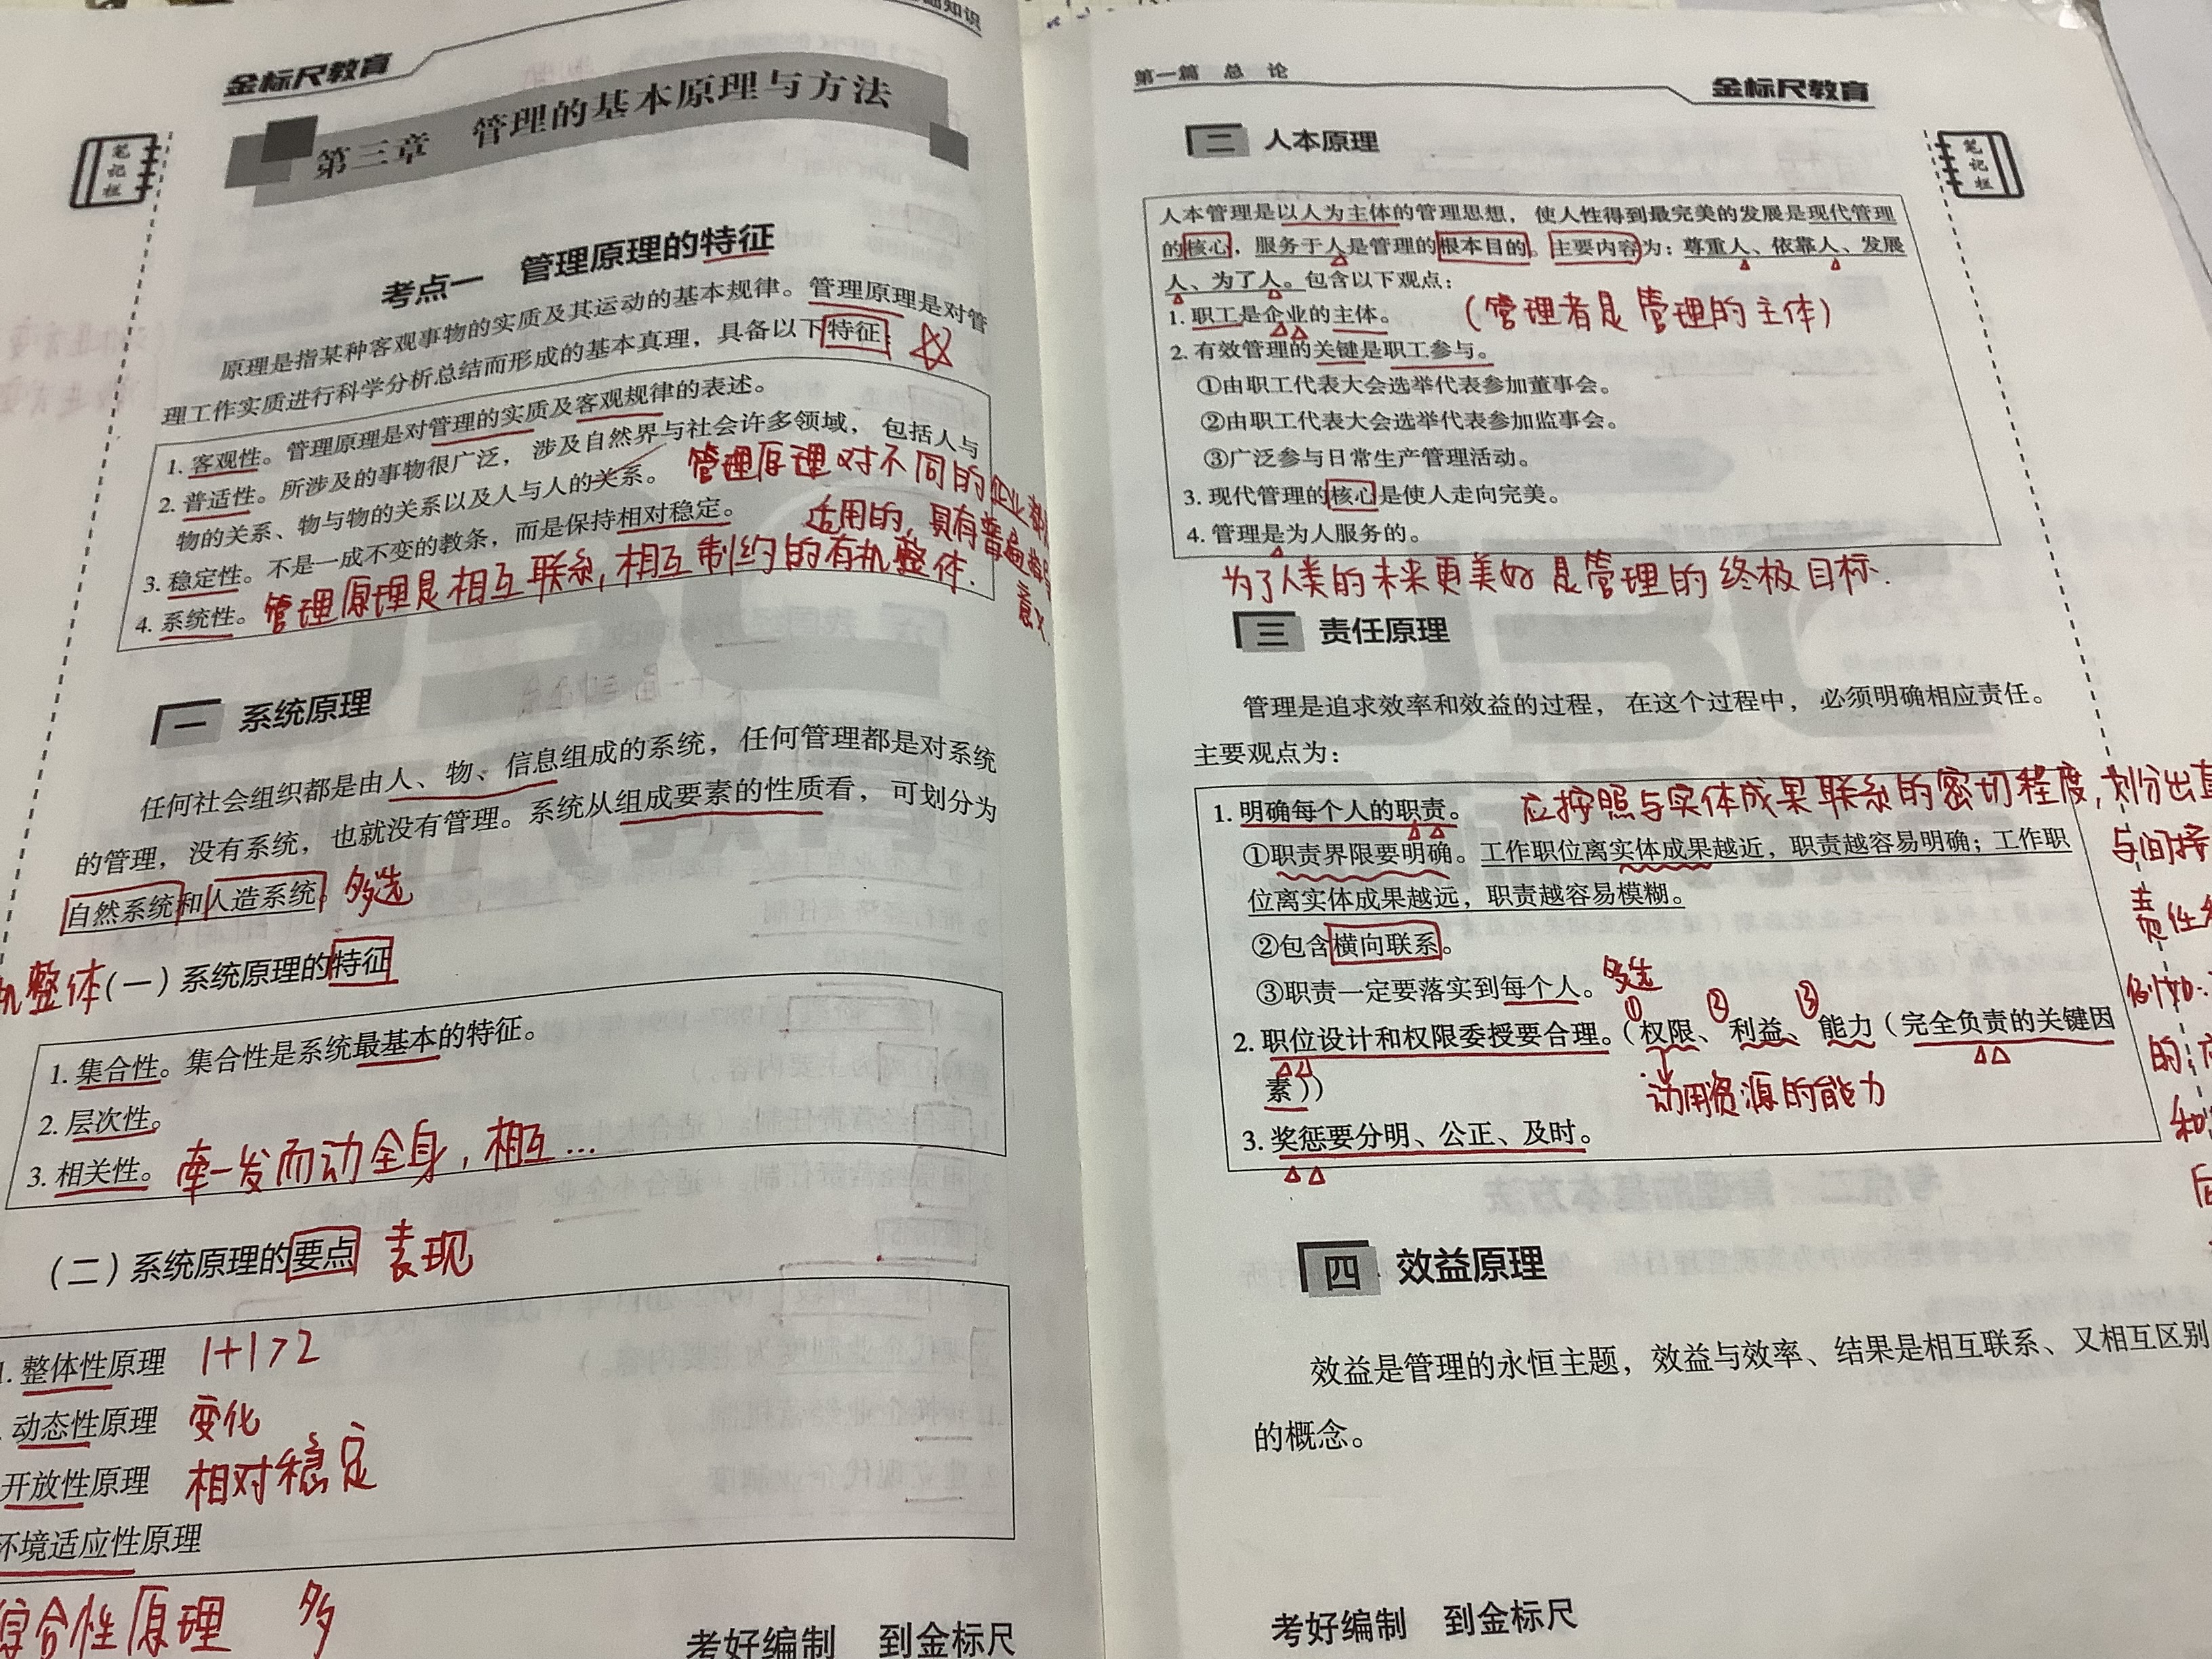 金标尺教育
础知识
笔记栏
第三章 管理的基本原理与方法
考点一 管理原理的特征
原理是指某种客观事物的实质及其运动的基本规律。管理原理是对管
理工作实质进行科学分析总结而形成的基本真理，具备以下特征：
1. 客观性。管理原理是对管理的实质及客观规律的表述。
2. 普适性。所涉及的事物很广泛，涉及自然界与社会许多领域，包括人与
物的关系、物与物的关系以及人与人的关系。 管理原理对不同的企业都
适用的，具有普遍指导
意义
3. 稳定性。不是一成不变的教条，而是保持相对稳定。
4. 系统性。 管理原理是相互联系，相互制约的有机整体.
一 系统原理
任何社会组织都是由人、物、信息组成的系统，任何管理都是对系统
的管理，没有系统，也就没有管理。系统从组成要素的性质看，可划分为
自然系统和人造系统。 多选
机整体
(一) 系统原理的特征
1. 集合性。集合性是系统最基本的特征。
2. 层次性。
3. 相关性。 牵一发而动全身，相互…
(二) 系统原理的要点 表现
1. 整体性原理 1+1>2
动态性原理 变化
开放性原理 相对稳定
环境适应性原理
综合性原理 多
考好编制 到金标尺
第一篇 总 论
金标尺教育
笔记栏
二 人本原理
人本管理是以人为主体的管理思想，使人性得到最完美的发展是现代管理
的核心，服务于人是管理的根本目的。主要内容为：尊重人、依靠人、发展
人、为了人。包含以下观点：
1. 职工是企业的主体。 (管理者是管理的主体)
2. 有效管理的关键是职工参与。
①由职工代表大会选举代表参加董事会。
②由职工代表大会选举代表参加监事会。
③广泛参与日常生产管理活动。
3. 现代管理的核心是使人走向完美。
4. 管理是为人服务的。
为了人类的未来更美好是管理的终极目标.
三 责任原理
管理是追求效率和效益的过程，在这个过程中，必须明确相应责任。
主要观点为：
1. 明确每个人的职责。 应按照与实体成果联系的密切程度，划分出直
与间接
责任
例如:
的:
和
①职责界限要明确。工作职位离实体成果越近，职责越容易明确；工作职
位离实体成果越远，职责越容易模糊。
②包含横向联系。
③职责一定要落实到每个人。 多选
① ② ③
2. 职位设计和权限委授要合理。（权限、利益、能力（完全负责的关键因
素））
动用资源的能力
3. 奖惩要分明、公正、及时。
四 效益原理
效益是管理的永恒主题，效益与效率、结果是相互联系、又相互区别
的概念。
考好编制 到金标尺